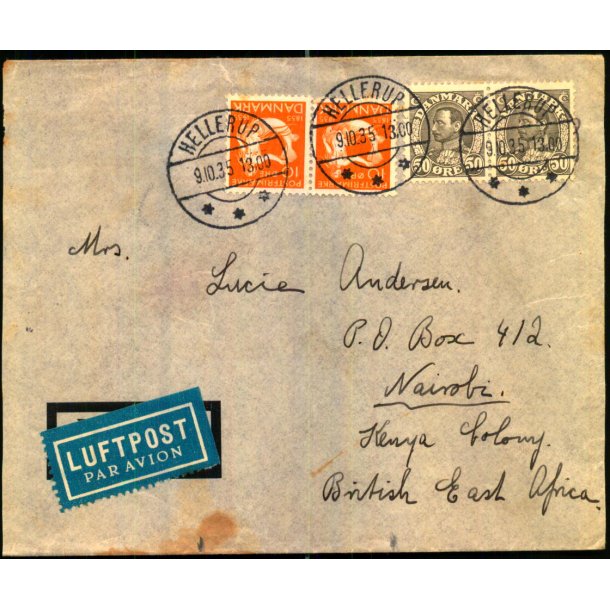 HELLERUP
9.10.35 13.00
HELLERUP
9.10.35 13.00
HELLERUP
9.10.35 13.00
POSTFRIMÆRKE
10 ØRE
DANMARK
1855
POSTFRIMÆRKE
10 ØRE
DANMARK
DANMARK
50 ØRE 50
DANMARK
50 ØRE 50
Mrs. Lucie Andersen.
P.O. Box 412.
Nairobi.
Kenya Colony.
British East Africa.
LUFTPOST
PAR AVION